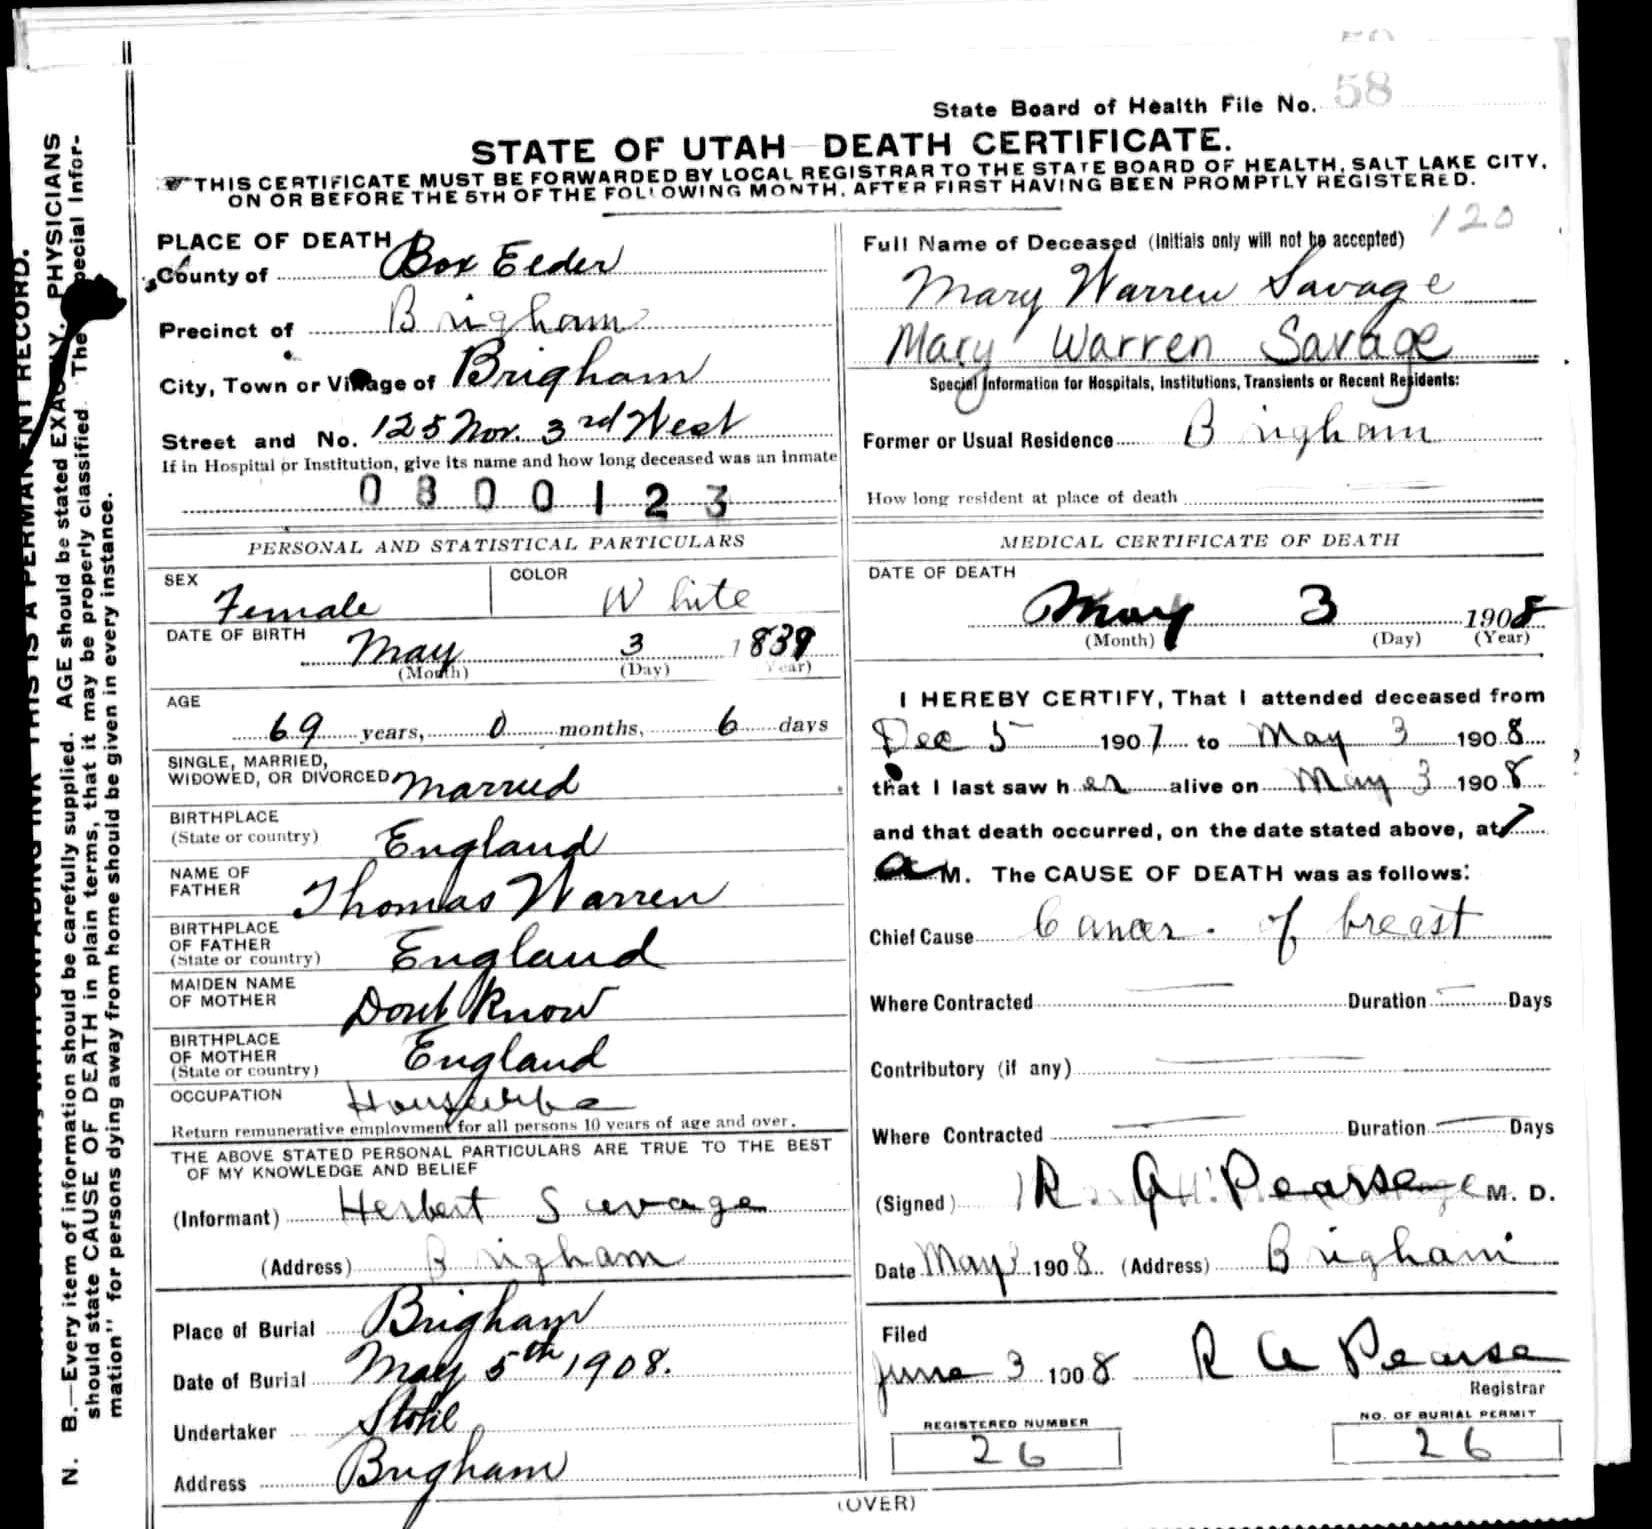 58
State Board of Health File No. 58
STATE OF UTAH DEATH CERTIFICATE.
THIS CERTIFICATE MUST BE FORWARDED BY LOCAL REGISTRAR TO THE STATE BOARD OF HEALTH, SALT LAKE CITY,
ON OR BEFORE THE 5TH OF THE FOLLOWING MONTH, AFTER FIRST HAVING BEEN PROMPTLY REGISTERED.
PLACE OF DEATH
County of Box Elder
Precinct of Brigham
City, Town or Village of Brigham
Street and No. 125 Nor. 3rd West
If in Hospital or Institution, give its name and how long deceased was an inmate
0800123
120
Full Name of Deceased (Initials only will not be accepted)
Mary Warren Savage
Mary Warren Savage
Special Information for Hospitals, Institutions, Transients or Recent Residents:
Former or Usual Residence Brigham
How long resident at place of death
PERSONAL AND STATISTICAL PARTICULARS
SEX Female COLOR White
DATE OF BIRTH May 3 1839
(Month) (Day) (Year)
AGE
69 years, 0 months, 6 days
SINGLE, MARRIED,
WIDOWED, OR DIVORCED Married
BIRTHPLACE
(State or country) England
NAME OF
FATHER Thomas Warren
BIRTHPLACE
OF FATHER
(State or country) England
MAIDEN NAME
OF MOTHER Dont Know
BIRTHPLACE
OF MOTHER
(State or country) England
OCCUPATION Housewife
Return remunerative employment for all persons 10 years of age and over.
THE ABOVE STATED PERSONAL PARTICULARS ARE TRUE TO THE BEST
OF MY KNOWLEDGE AND BELIEF
(Informant) Herbert Savage
(Address) Brigham
Place of Burial Brigham
Date of Burial May 5th 1908.
Undertaker Stohl
Address Brigham
MEDICAL CERTIFICATE OF DEATH
DATE OF DEATH
May 3 1908
(Month) (Day) (Year)
I HEREBY CERTIFY, That I attended deceased from
Dec 5 1907 to May 3 1908
that I last saw her alive on May 3 1908
and that death occurred, on the date stated above, at 7
a M. The CAUSE OF DEATH was as follows:
Chief Cause Cancer of breast
Where Contracted Duration Days
Contributory (if any)
Where Contracted Duration Days
(Signed) R A Pearse M. D.
Date May 3 1908 (Address) Brigham
Filed
June 3 1908 R A Pearse
Registrar
REGISTERED NUMBER
26
NO. OF BURIAL PERMIT
26
(OVER)
THIS IS A PERMANENT RECORD.
N. B.—Every item of information should be carefully supplied. AGE should be stated EXACTLY. PHYSICIANS
should state CAUSE OF DEATH in plain terms, that it may be properly classified. The "Special Infor-
mation" for persons dying away from home should be given in every instance.